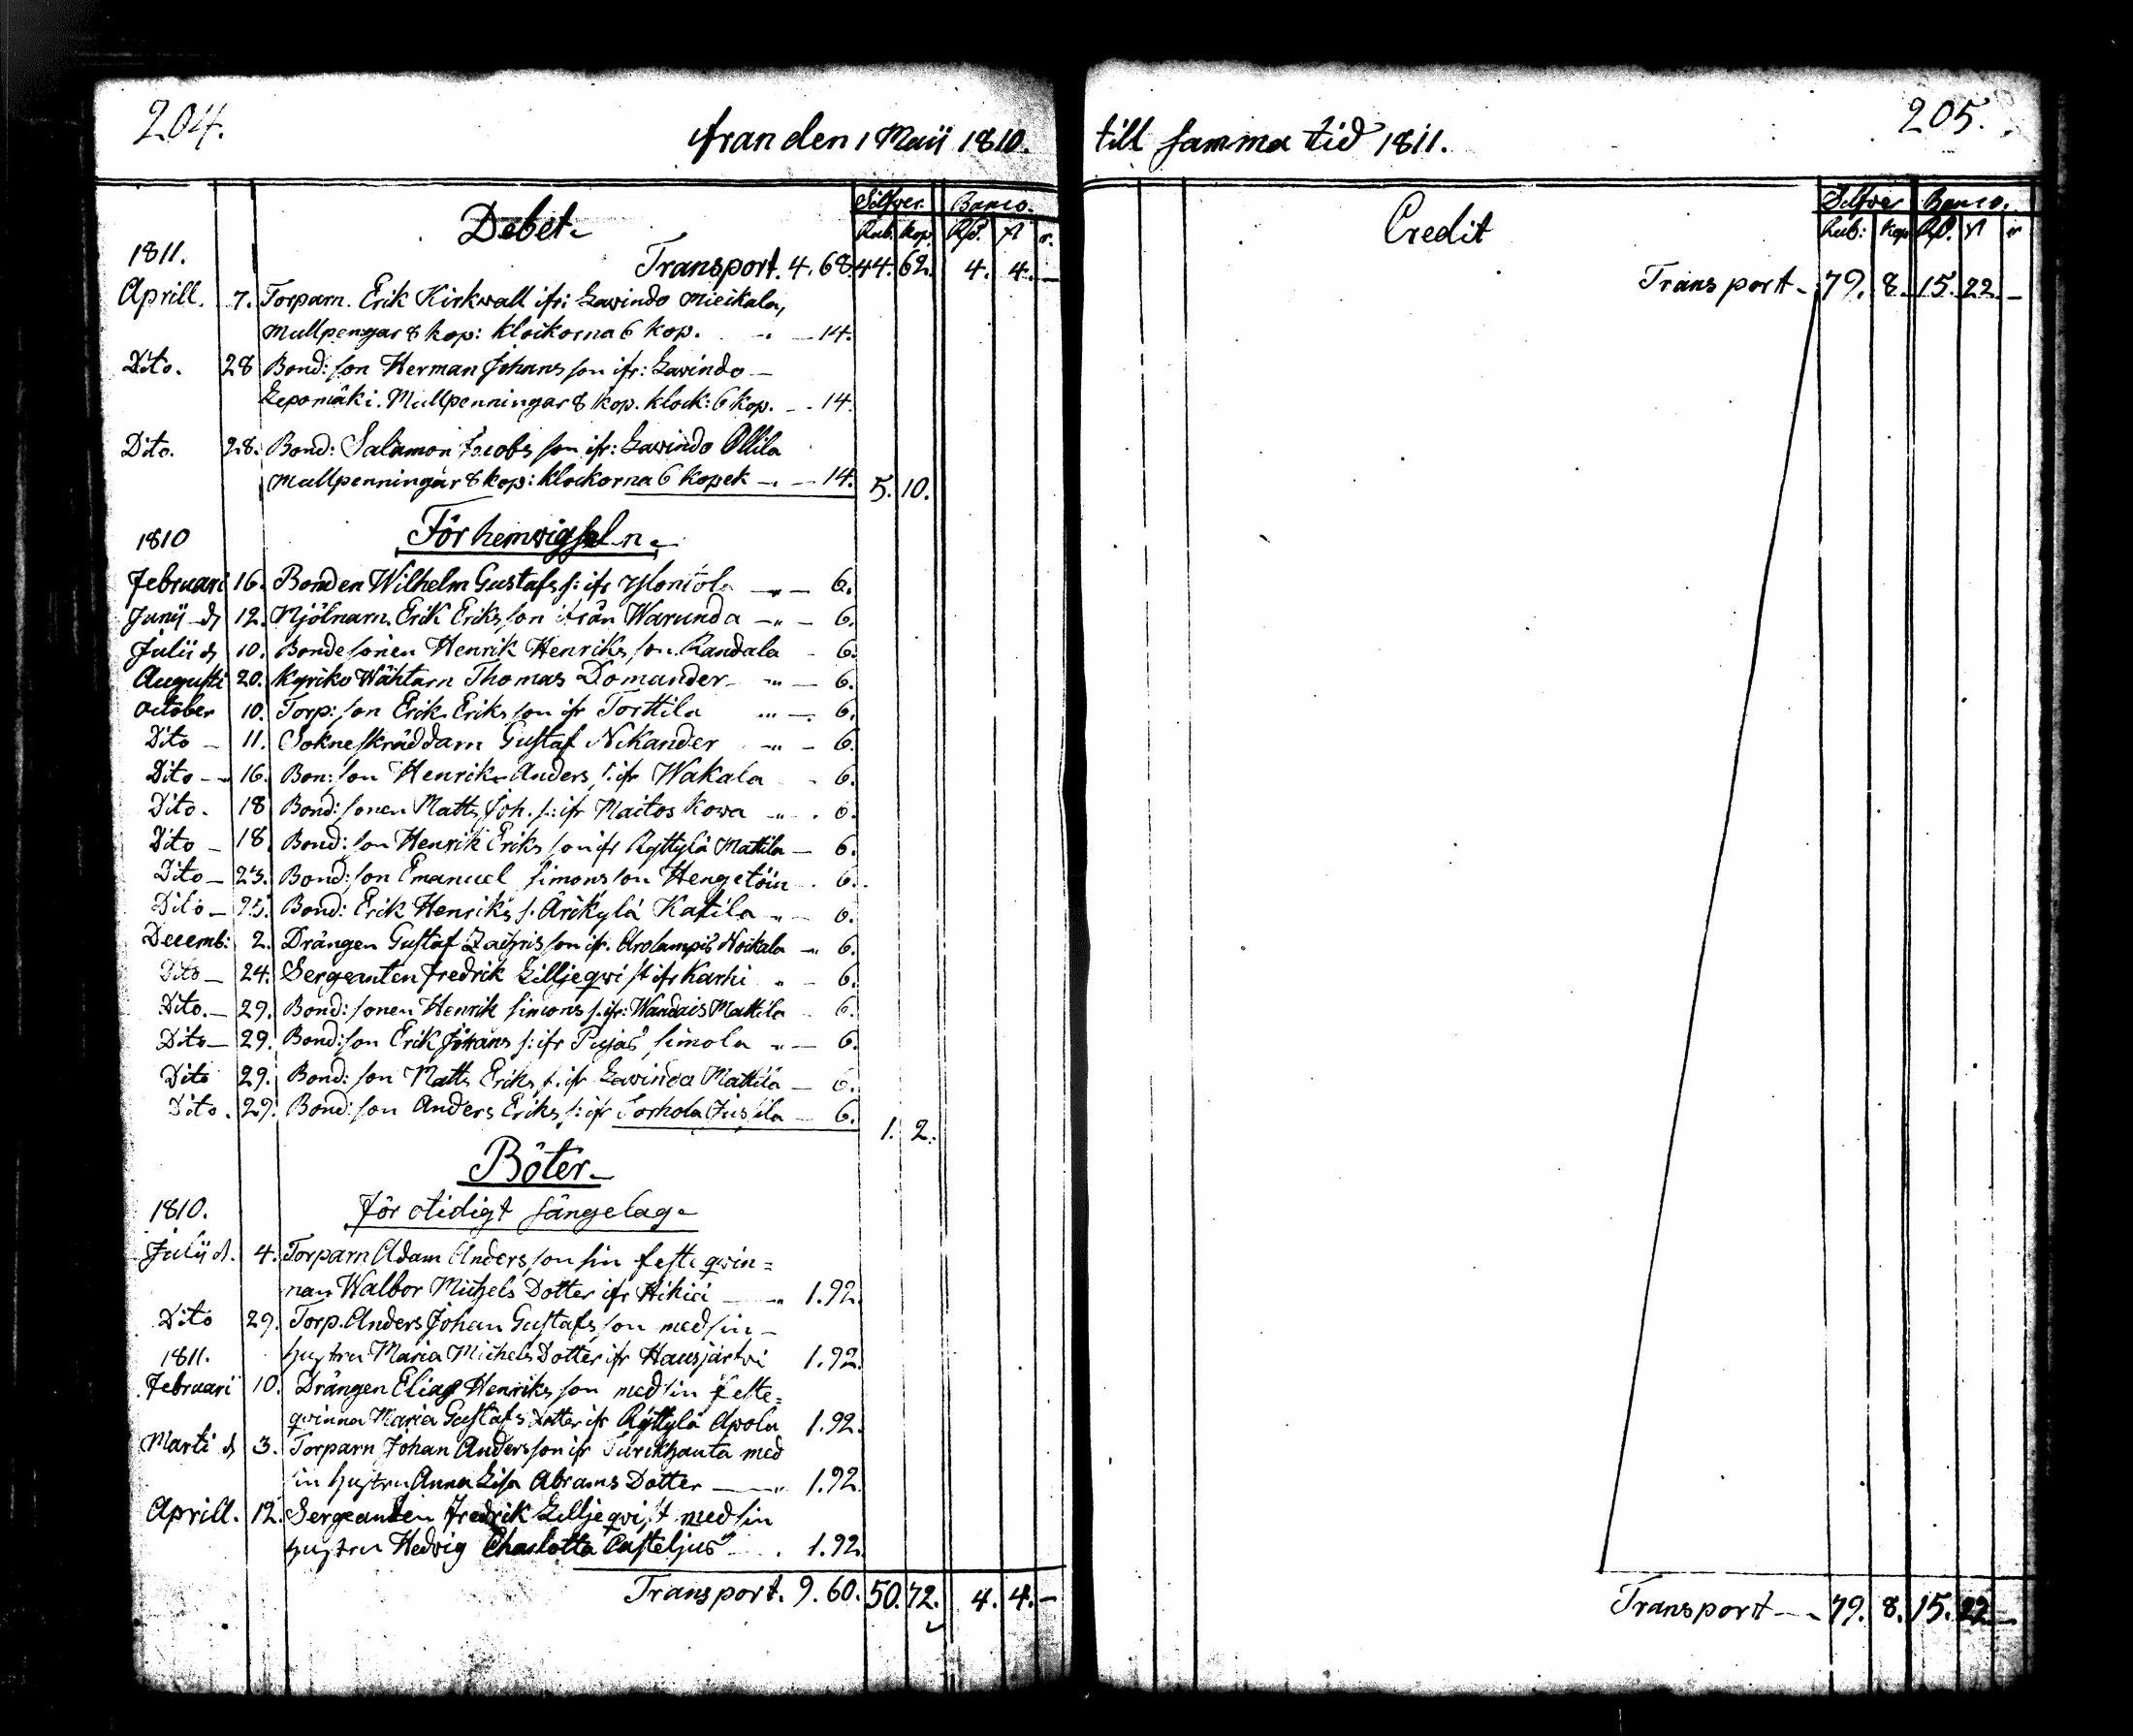 204.
från den 1 Maij 1810.
Debet.
Silfver. Banco.
Rub. Kop. Rd. ſl r.
1811.
Transport. 4. 68. 44. 62. 4. 4. —
Aprill. 7. Torparn. Erik Kirkwall ifr: Lawindo Mieikala,
Mullpengar 8 kop: klockorna 6 kop. — 14.
Dito. 28 Bond: son Herman Johans son ifr: Lawindo —
Lepomäki. Mullpenningar 8 kop. klock: 6 kop. — 14.
Dito. 28. Bond: Salamon Jacobs son ifr: Lawindo Ollila
Mullpenningar 8 kop: klockorna 6 kopek — 14. 5. 10.
1810 För hemwigseln.
Februari 16. Bonden Wilhelm Gustafs s: ifr — 6.
Junij d 12. Mjölnarn. Erik Eriks son ifrån Warunda — 6.
Julii d 10. Bondesonen Henrik Henriks son. Randala - 6.
Augusti 20. Kyrko Wähtarn Thomas Domander — 6.
October 10. Torp: son Erik Eriks son ifr Torttila — 6.
Dito — 11. Sokneskräddarn Gustaf Nikander — 6.
Dito — 16. Bon: son Henrik Anders s: ifr Wakala - 6.
Dito. 18 Bond: sonen Matts Joh. s: ifr Maitos Kowa — 6.
Dito — 18. Bond: son Henrik Eriks son ifr Ryttylä Mattila — 6.
Dito — 23. Bond: son Emanuel Simons son Hengetöin . 6.
Dito — 25. Bond: Erik Henriks s. Ärikylä Katila — 6.
Decemb: 2. Drängen Gustaf Zachris son ifr. Arolampis Noikala — 6.
Dito — 24. Sergeanten Fredrik Lilljeqwist ifr Karhi - 6.
Dito. — 29. Bond: sonen Henrik Simons s. ifr: Wandais Mattila 6.
Dito — 29. Bond: son Erik Johans s: ifr Pujas Simola — 6.
Dito 29. Bond: son Matts Eriks s. ifr Lawinda Mattila — 6.
Dito. 29. Bond: son Anders Eriks s: ifr Torhola Jussila — 6. 1. 2.
Böter.
1810. För otidigt sängelag.
Julij d. 4. Torparn Adam Anders son sin feste qwin=
nan Walbor Michels Dotter ifr Hikiä — 1.92.
Dito 29. Torp. Anders Johan Gustafs son med sin —
1811. hustru Maria Michels Dotter ifr Hausjärwi 1.92.
Februari 10. Drängen Elias Henriks son med sin feste=
qwinna Maria Gustafs Dotter ifr Ryttylä Apola 1.92.
Marti d 3. Torparn Johan Andersson ifr Turkhauta med
sin hustru Anna Lisa Abrams Dotter — 1.92.
Aprill. 12. Sergeanten Fredrik Lilljeqwist med sin
hustru Hedvig Charlotta Casteljus . 1.92.
Transport. 9. 60. 50. 72. 4. 4. —
205.
till samma tid 1811.
Credit
Silfver Banco.
Rub: Kop Rd. ſl r
Transport — 79. 8. 15. 22. —
Transport — 79. 8. 15. 22. —